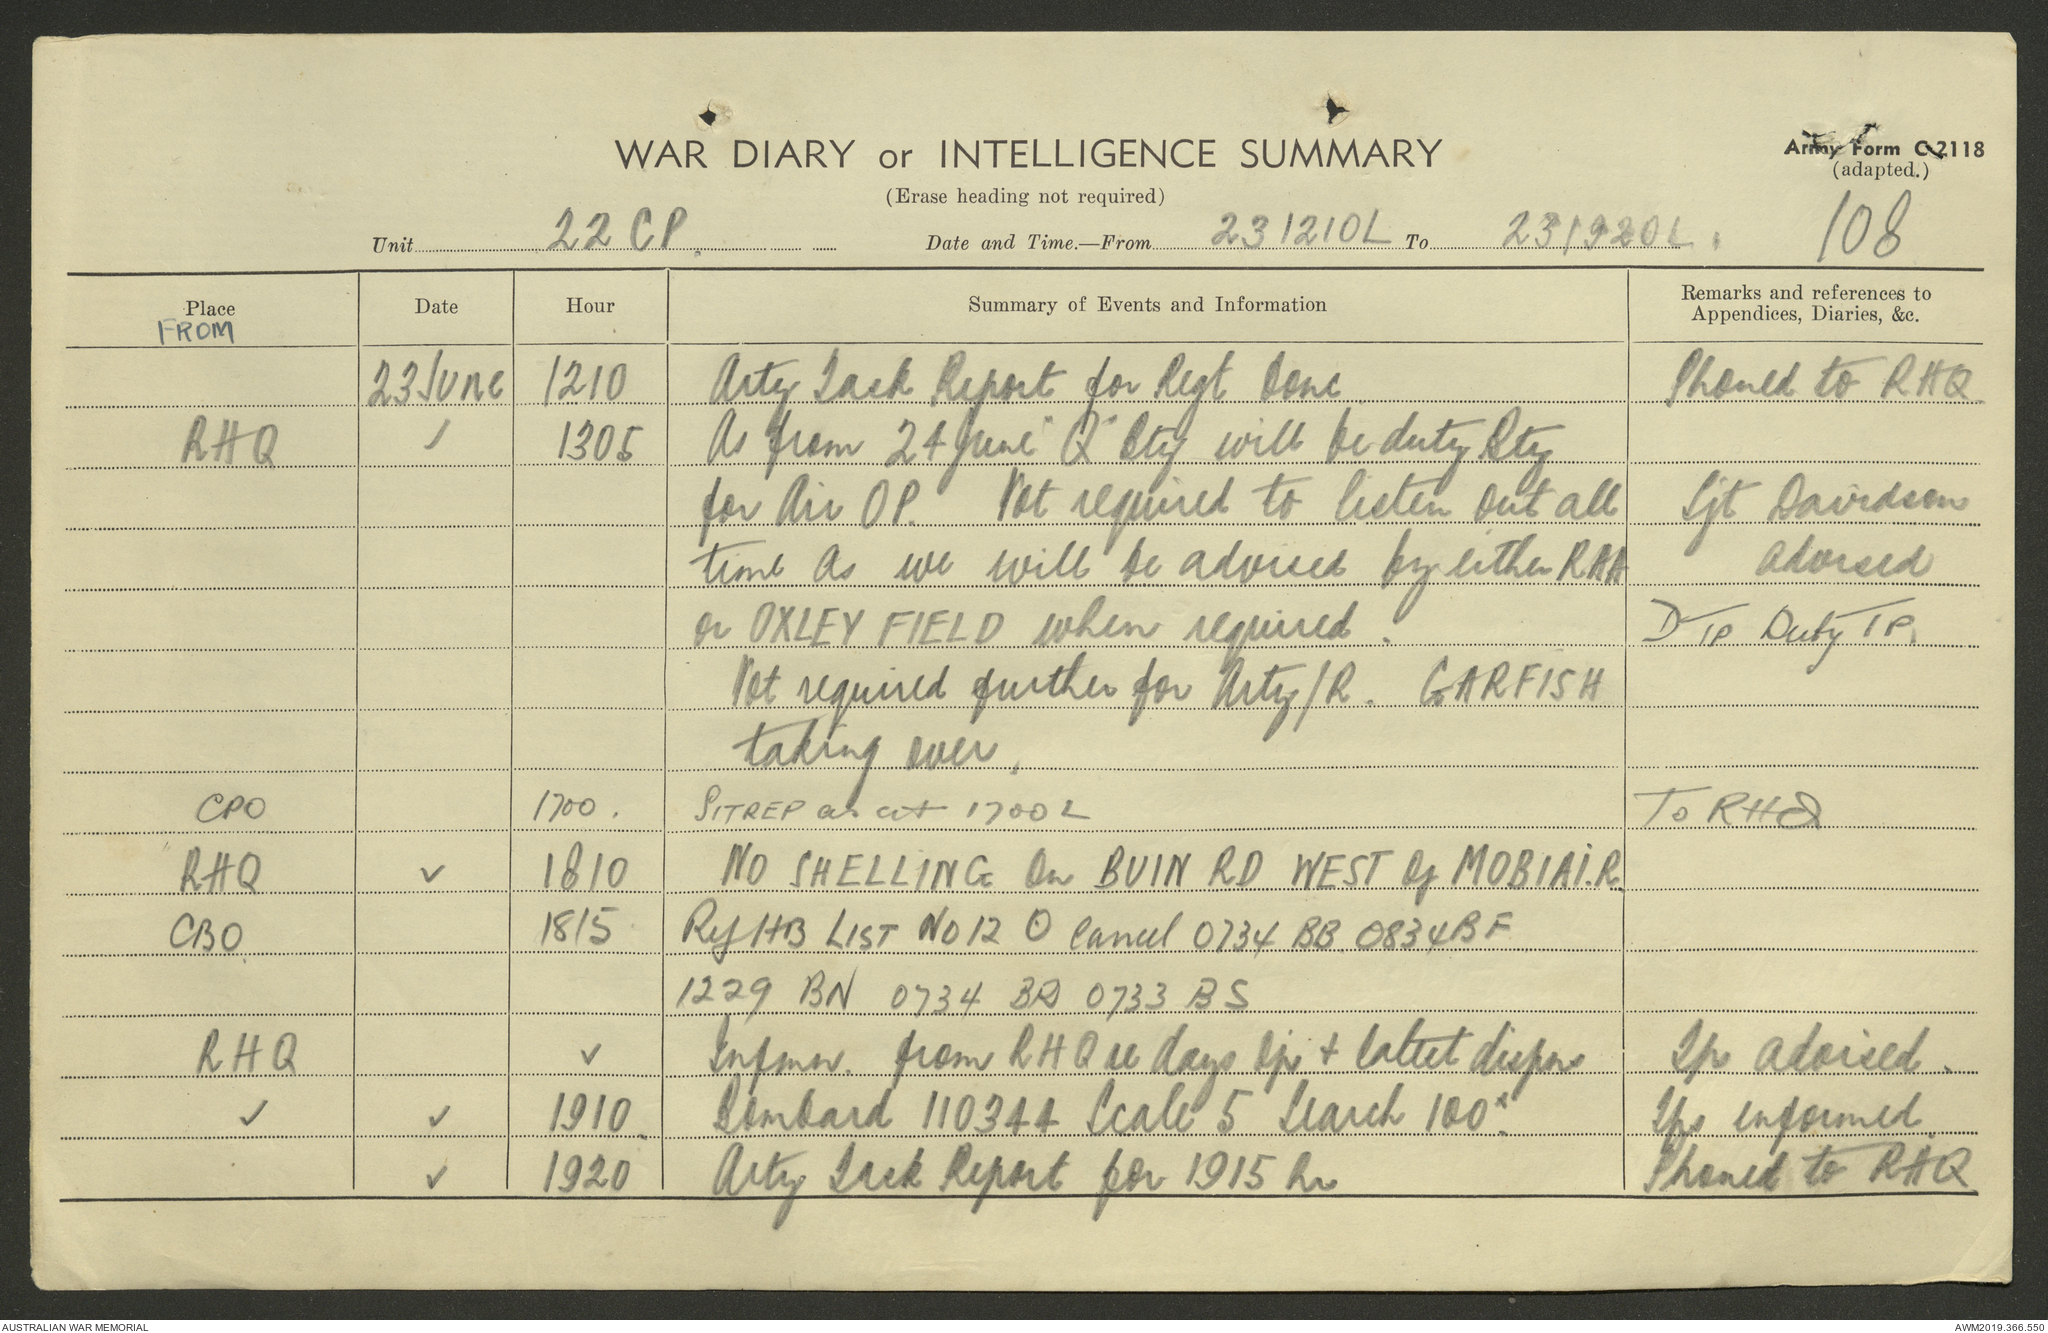 WAR DIARY or INTELLIGENCE SUMMARY
Army Form C2118
(adapted.)
(Erase heading not required)
108
Unit 22 CP. Date and Time.—From 231210L To 231920L.
Place Date Hour Summary of Events and Information Remarks and references to
Appendices, Diaries, &c.
FROM
23 June 1210 Arty Task Report for Regt Done Phoned to RHQ.
RHQ ✓ 1305 As from 24 June "Q" Bty will be duty Bty
for Air OP. Not required to listen out all Sjt Davidson
time as we will be advised by either RAA advised
or OXLEY FIELD when required. D TP Duty TP.
Not required further for Arty/R. GARFISH
taking over.
CPO 1700. SITREP as at 1700L To RHQ
RHQ ✓ 1810 NO SHELLING On BUIN RD WEST Of MOBIAI.R.
CBO 1815 Ref HB LIST No 12 O Cancel 0734 BB 0834 BF
1229 BN 0734 0733 BS
RHQ ✓ Infmn. from RHQ re days Ops + latest dispns Tps advised.
✓ ✓ 1910. Bombard 110344 Scale 5 Search 100x. Tps informed.
✓ 1920 Arty Task Report for 1915 hr Phoned to RHQ
AUSTRALIAN WAR MEMORIAL AWM2019.366.550